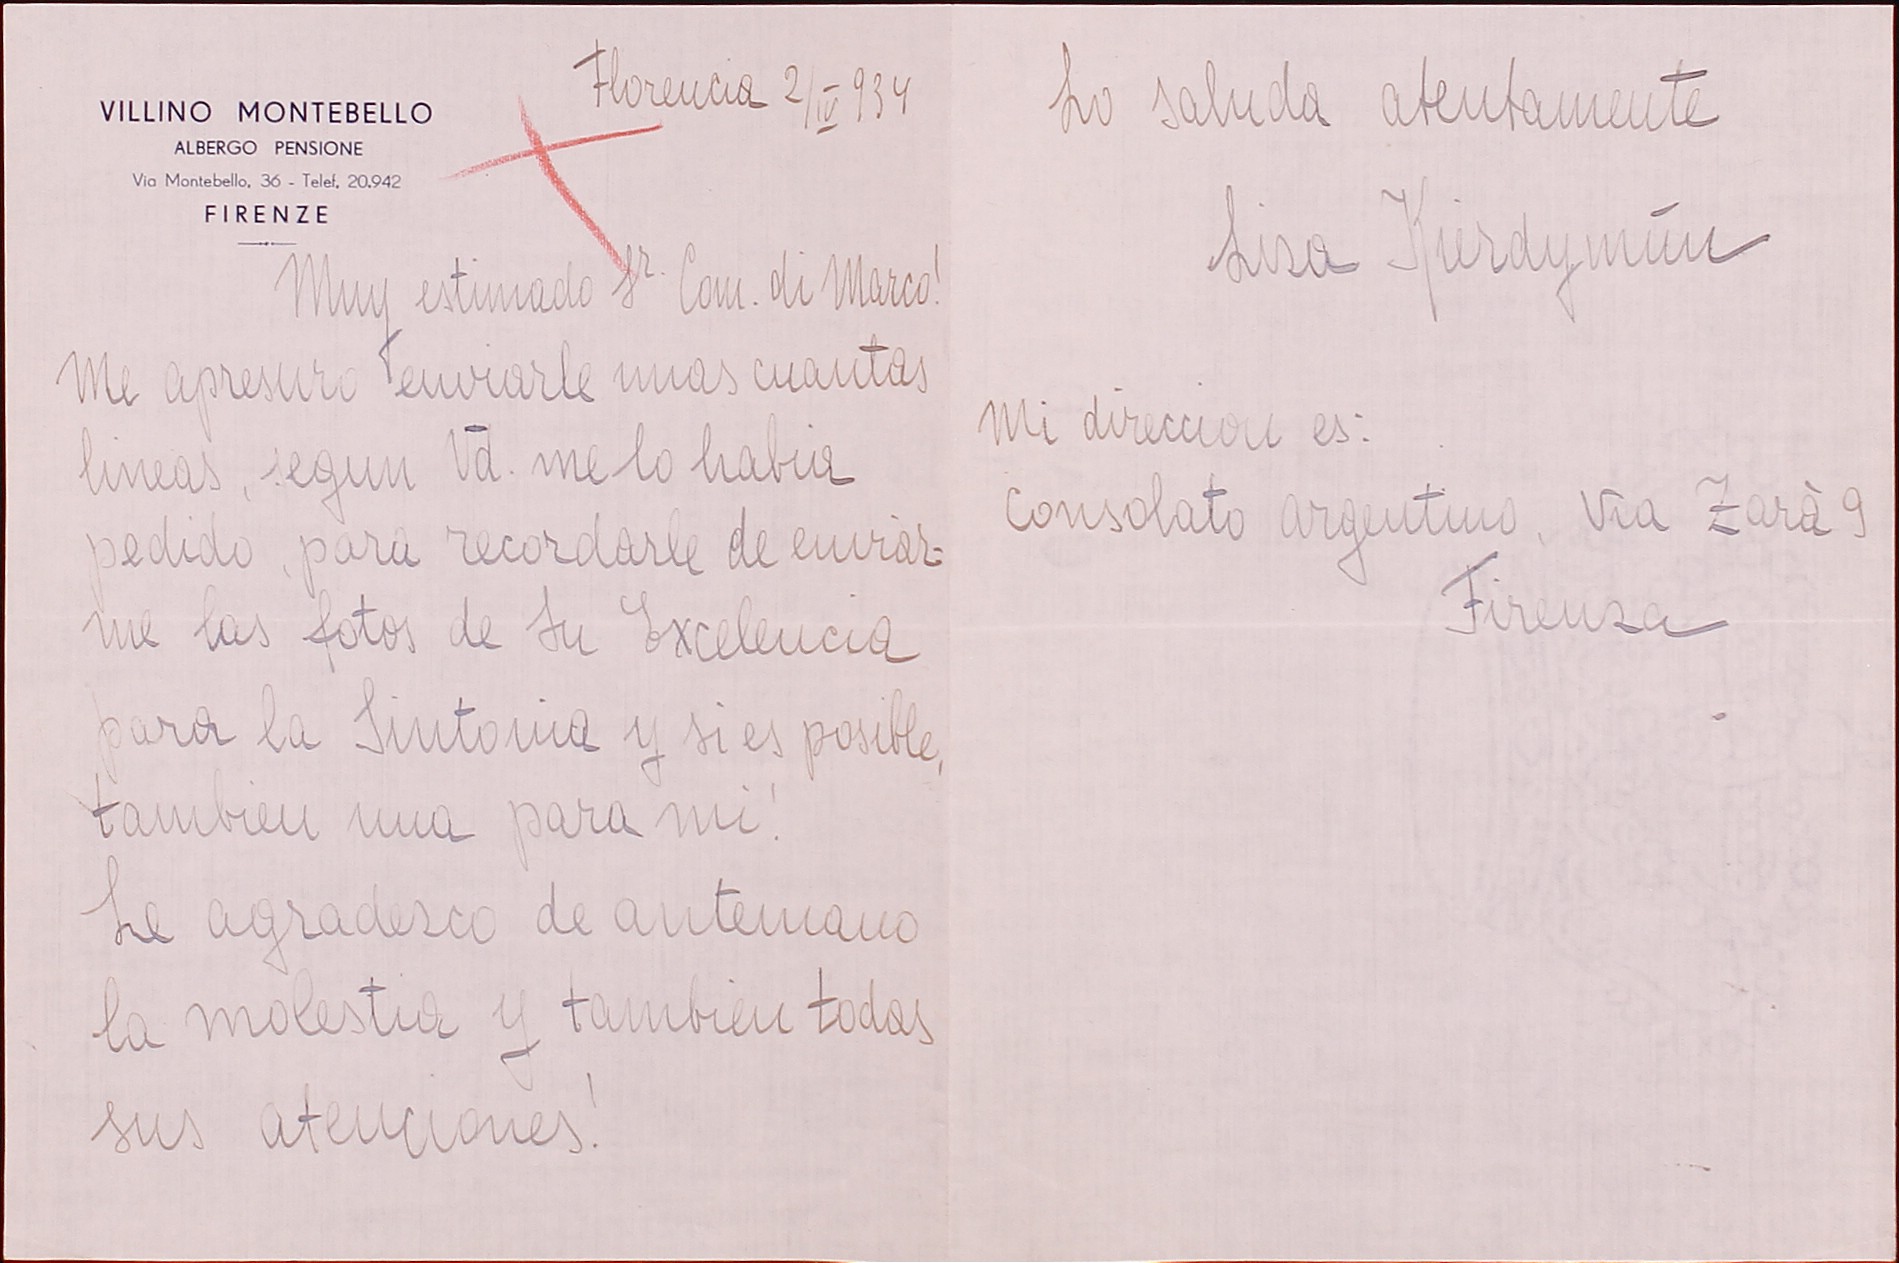 VILLINO MONTEBELLO
ALBERGO PENSIONE
Via Montebello, 36 - Telef. 20.942
FIRENZE
Florencia 2/IV 934
Muy estimado Sr. Com. di Marco!
Me apresuro enviarle unas cuantas
lineas, segun Vd. me lo habia
pedido, para recordarle de enviar=
me las fotos de Su Excelencia
para la Sintonia y si es posible,
tambien una para mi!
Le agradezco de antemano
la molestia y tambien todas
sus atenciones!
Lo saluda atentamente
Lisa
Mi direccion es:
Consolato argentino, Via Zarà 9
Firenza